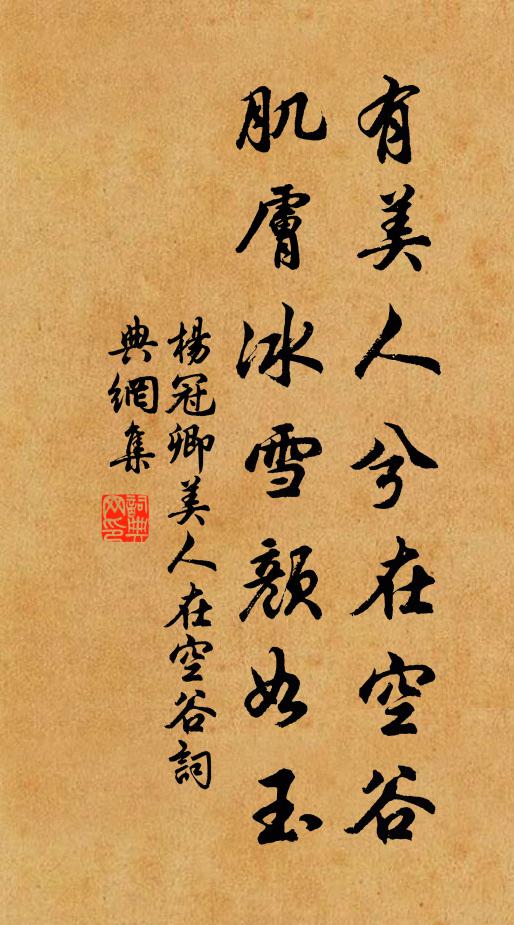 有美人兮在空谷
肌膚冰雪顏如玉
楊冠卿美人在空谷詞
典網集
詞典網印